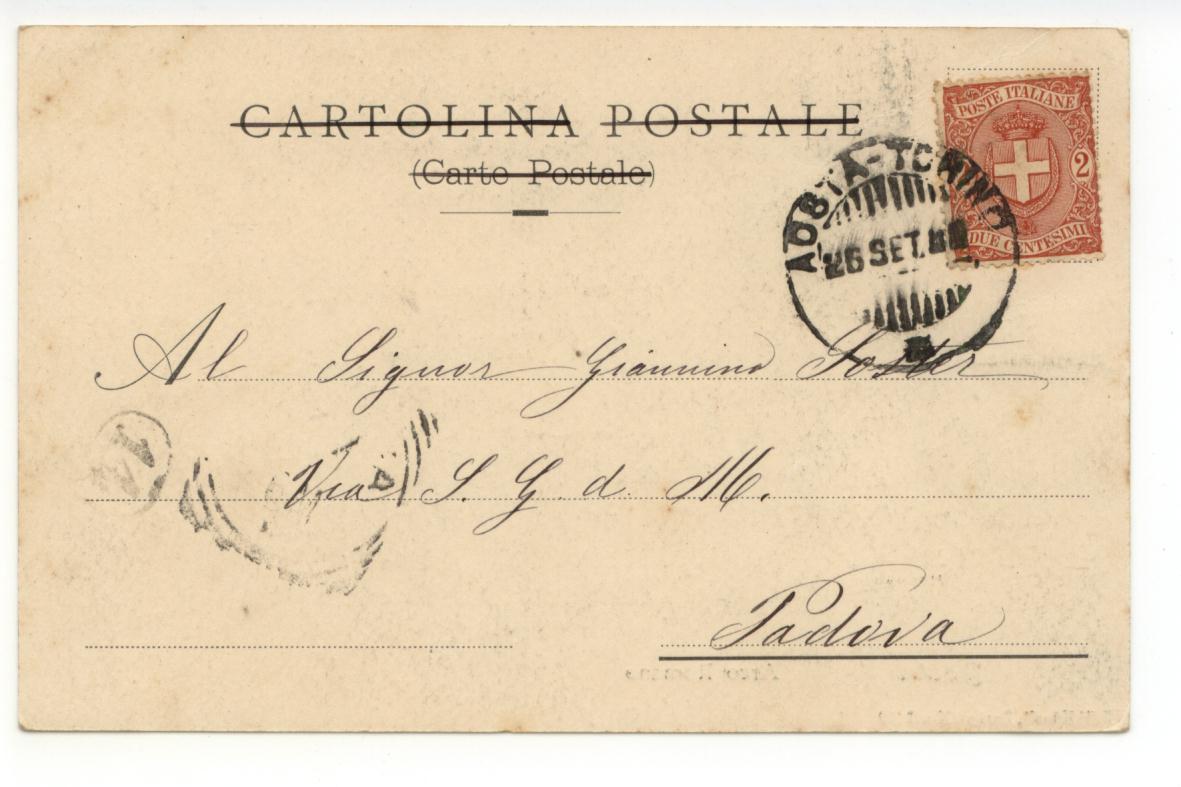 CARTOLINA POSTALE
(Carte Postale)
POSTE ITALIANE
2
DUE CENTESIMI
AOSTA-TORINO
26 SET.
Al Signor Giannino
Via S. G. d. M.
Padova